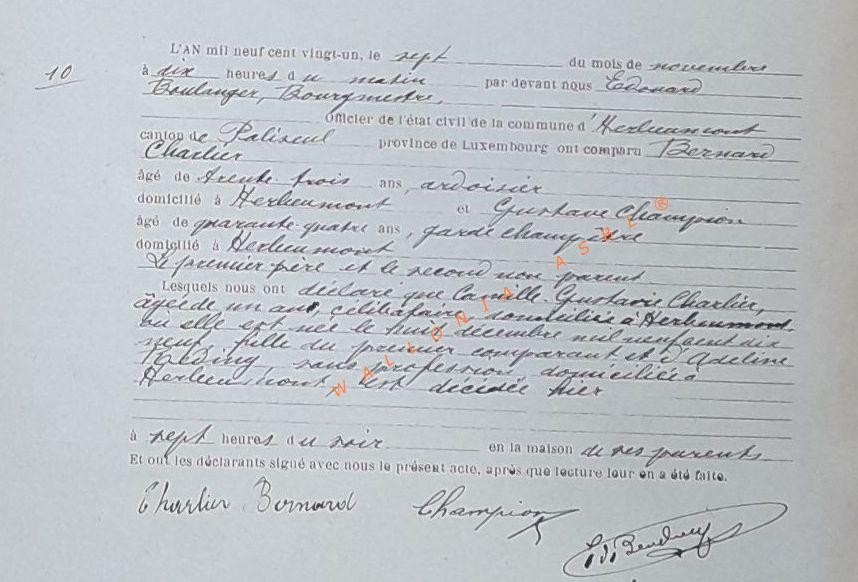 L'AN mil neuf cent vingt-un, le sept du mois de novembre
10
à dix heures du matin par devant nous Edouard
Boulanger, Bourgmestre,
Officier de l'état civil de la commune d'Herbeumont
canton de Paliseul province de Luxembourg ont comparu Bernard
Charlier
âgé de trente trois ans, ardoisier
domicilié à Herbeumont et Gustave Champion
âgé de quarante-quatre ans, garde champêtre
domicilié à Herbeumont
Le premier père et le second non parent
Lesquels nous ont déclaré que Camille Gustavie Charlier,
âgée de un an, célibataire domiciliée à Herbeumont
où elle est née le huit décembre mil neuf cent dix
neuf, fille du premier comparant et d'Adeline
sans profession domiciliée à
Herbeumont, est décédée hier
à sept heures du soir en la maison de ses parents
Et ont les déclarants signé avec nous le présent acte, après que lecture leur en a été faite.
Charlier Bernard Champion
WALLONIA ASBL ®